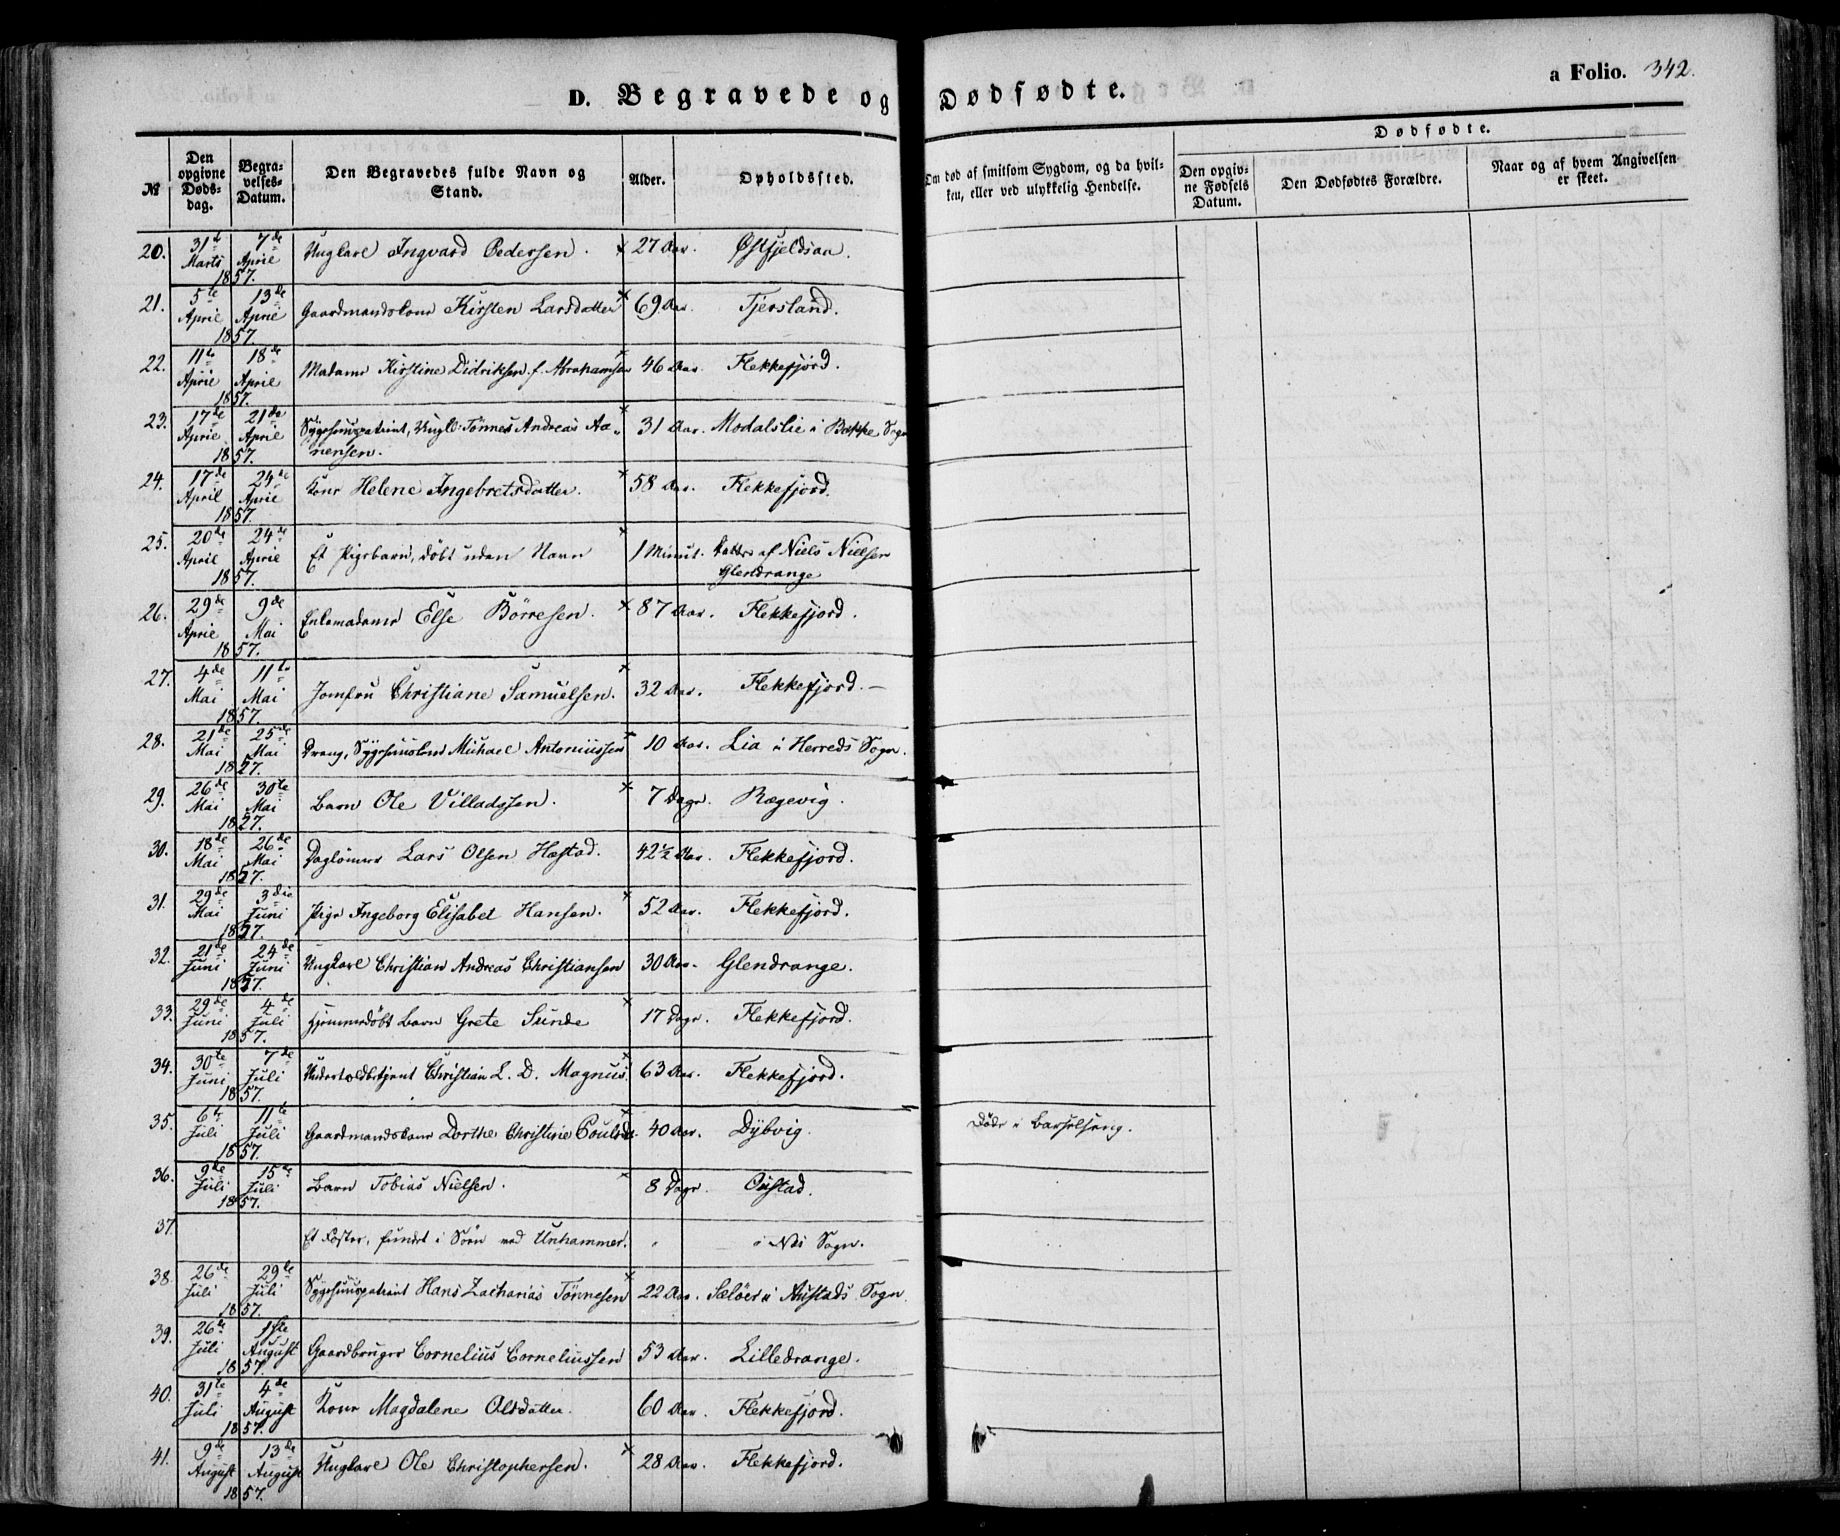 D. Begravede og Dødfødte.
a Folio. 342.
№
Den opgivne Døds-dag.
Begra-velses-Datum.
Den Begravedes fulde Navn og Stand.
Alder.
Opholdssted.
Om død af smitsom Sygdom, og da hvil-ken, eller ved ulykkelig Hendelse.
Dødfødte.
Den opgiv-ne Fødsels Datum.
Den Dødfødtes Forældre.
Naar og af hvem Angivelsen er skeet.
20. 31te Marts 7de April 1857. Ungkarl Ingvard Pedersen. × 27 Aar. Østfjeldsaa.
21. 5te April 13de April 1857. Gaardmandskone Kirsten Larsdatter × 69 Aar. Tjersland.
22. 11te April 18de April 1857. Madame Kirstine Didriksen f. Abrahamsen × 46 Aar. Flekkefjord.
23. 17de April 21de April 1857. Sygehuuspatient, Ungk. Tönnes Andreas Aa-nensen. × 31 Aar. Modalslie i Bakke Sogn
24. 17de April 24de April 1857. Kone Helene Ingebretsdatter. × 58 Aar. Flekkefjord.
25. 20de April 24de April 1857. Et Pigebarn, döbt uden Navn × 1 Minut. Datter af Niels Nielsen Glendrange
26. 29de April 9de Mai 1857. Enkemadame Else Börresen. × 87 Aar. Flekkefjord.
27. 4de Mai 11te Mai 1857. Jomfru Christiane Samuelsen. × 32 Aar. Flekkefjord. —
28. 21de Mai 25de Mai 1857. Dreng, Sygehuuslem Michael Antoniussen × 10 Aar. Lia i Herreds Sogn.
29. 26de Mai 30te Mai 1857. Barn Ole Villadssen. × 7 Dage. Rægevig.
30. 18de Mai 26de Mai 1857. Daglönner Lars Olsen Hæstad. 42½ Aar. Flekkefjord.
31. 29de Mai 3die Juni 1857. Pige Ingeborg Elisabet Hansen. × 52 Aar. Flekkefjord.
32. 21de Juni 24de Juni 1857. Ungkarl Christian Andreas Christiansen 30 Aar. Glendrange.
33. 29de Juni 4de Juli 1857. Hjemmedöbt Barn Grete Sunde × 17 Dage. Flekkefjord.
34. 30te Juni 7de Juli 1857. Undertoldbetjent Christian L. D. Magnus. × 63 Aar. Flekkefjord.
35. 6te Juli 11te Juli 1857. Gaardmandskone Dorthe Christine Poulsd. × 40 Aar. Dybvig. Döde i Barselseng.
36. 9de Juli 15de Juli 1857. Barn Tobias Nielsen. × 8 Dage. Oustad.
37. Et Foster, fundet i Söen ved Unhammer. " i Næs Sogn.
38. 26de Juli 29de Juli 1857. Sygehuuspatient Hans Zacharias Tönnesen × 22 Aar. Selöer i Austads Sogn.
39. 26de Juli 1ste August 1857. Gaardbruger Cornelius Corneliussen 53 Aar. Lilledrange.
40. 31te Juli 4de August 1857. Kone Magdalene Olsdatter. 60 Aar. Flekkefjord.
41. 9de August 13de August 1857. Ungkarl Ole Christophersen. × 28 Aar. Flekkefjord.